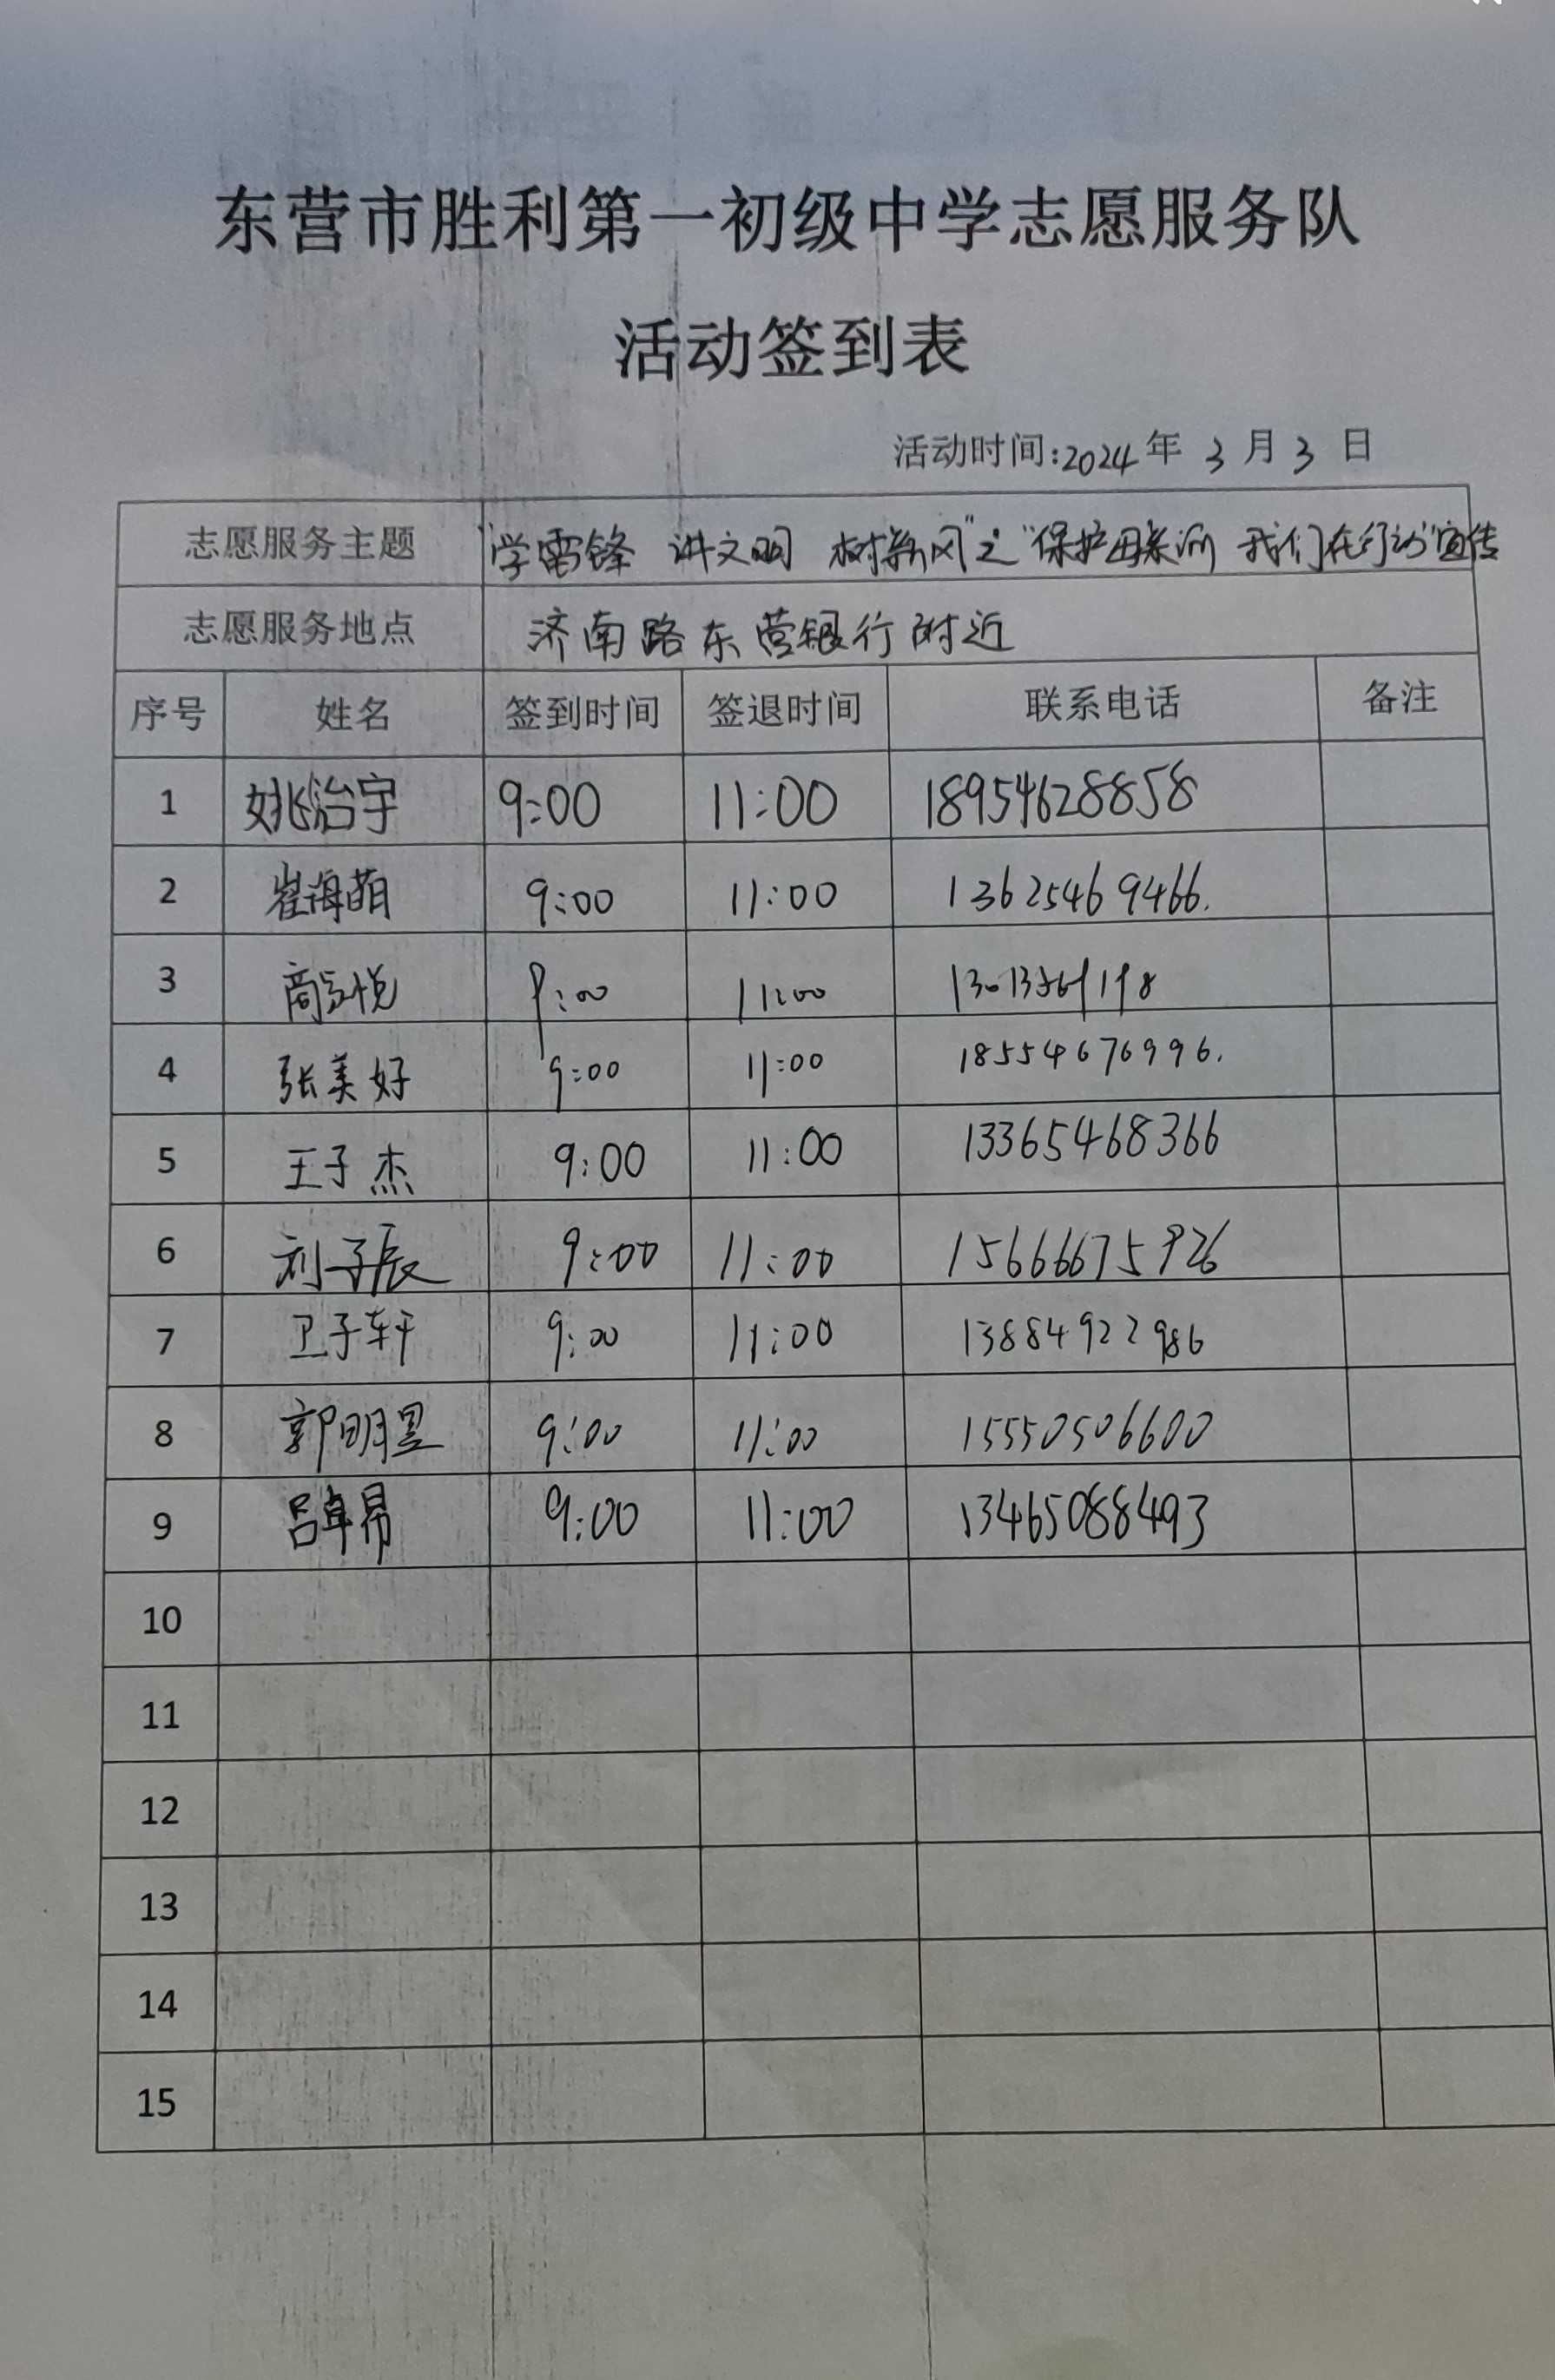 东营市胜利第一初级中学志愿服务队
活动签到表
活动时间:2024年 3 月 3 日
志愿服务主题 "学雷锋 讲文明 树新风"之"保护母亲河 我们在行动"宣传
志愿服务地点 济南路东营银行附近
序号 姓名 签到时间 签退时间 联系电话 备注
1 姚治宇 9:00 11:00 18954628858
2 崔海萌 9:00 11:00 13625469466.
3 商 悦 9:00 11:00
4 张美好 9:00 11:00 18554676996.
5 王子杰 9:00 11:00 13365468366
6 刘子辰 9:00 11:00 15666675926
7 卫子轩 9:00 11:00 13884922986
8 郭明昱 9:00 11:00 15550506600
9 吕卓昂 9:00 11:00 13465088493
10
11
12
13
14
15